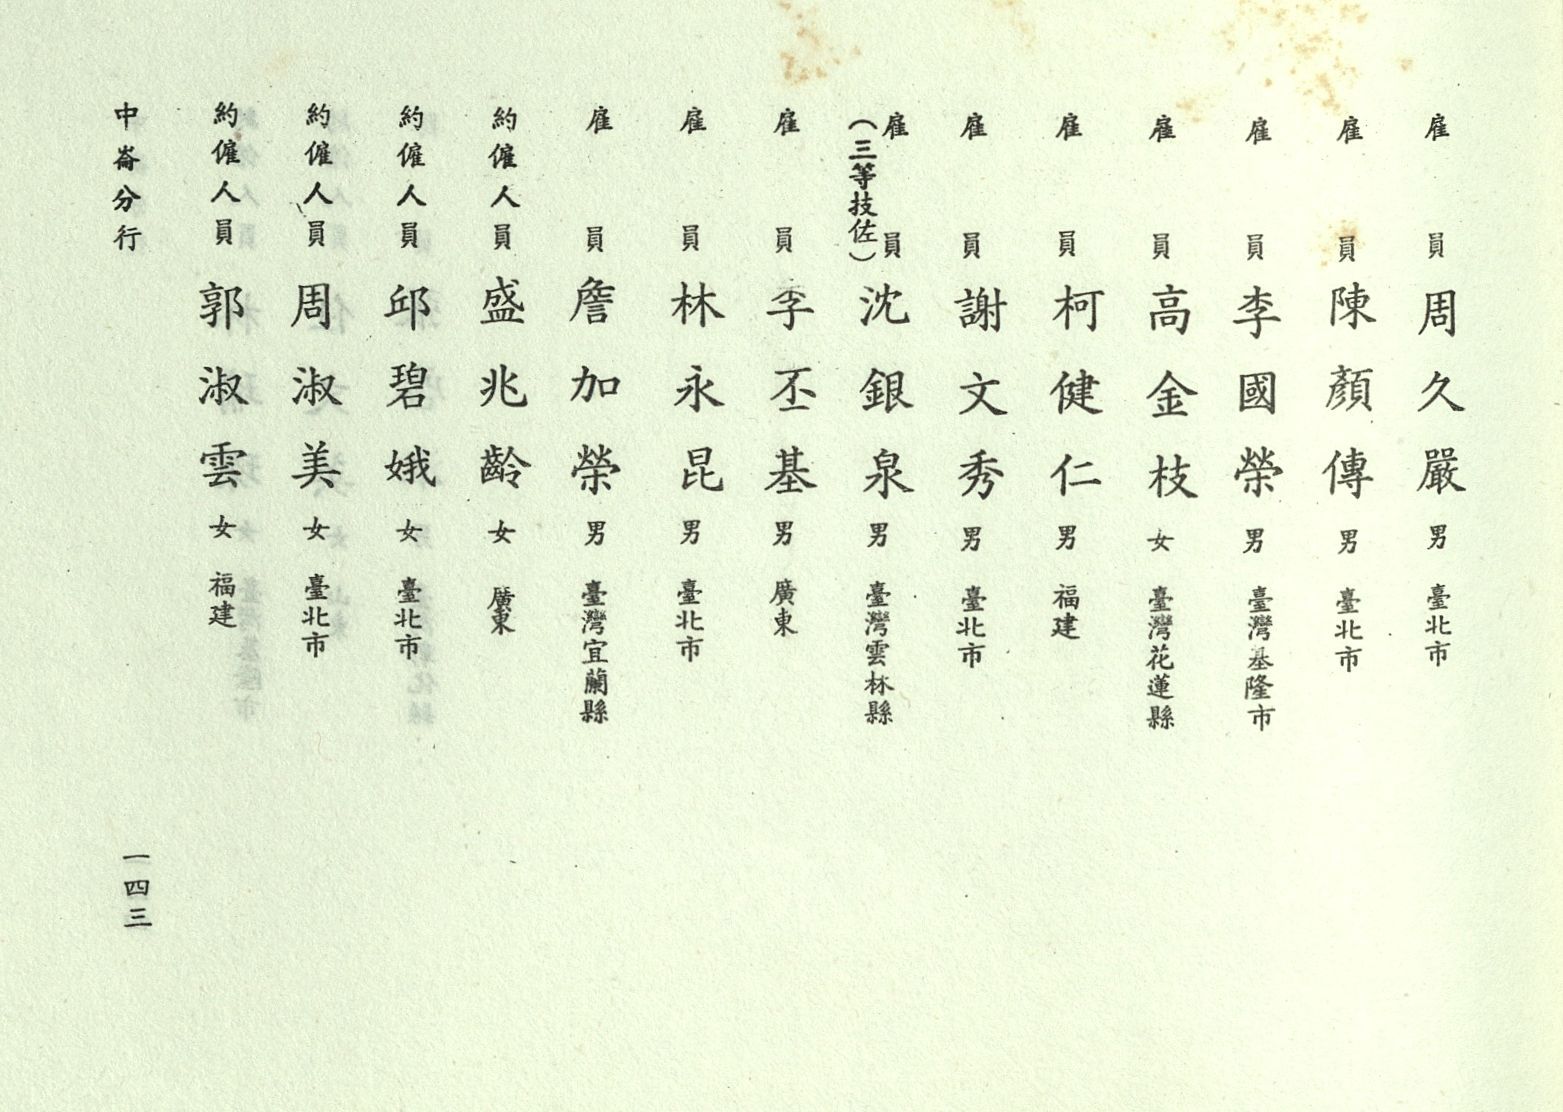 雇員 周久嚴 男 臺北市
雇員 陳顏傳 男 臺北市
雇員 李國榮 男 臺灣基隆市
雇員 高金枝 女 臺灣花蓮縣
雇員 柯健仁 男 福建
雇員 謝文秀 男 臺北市
雇員(三等技佐) 沈銀泉 男 臺灣雲林縣
雇員 李丕基 男 廣東
雇員 林永昆 男 臺北市
雇員 詹加榮 男 臺灣宜蘭縣
約僱人員 盛兆齡 女 廣東
約僱人員 邱碧娥 女 臺北市
約僱人員 周淑美 女 臺北市
約僱人員 郭淑雲 女 福建
中崙分行 一四三